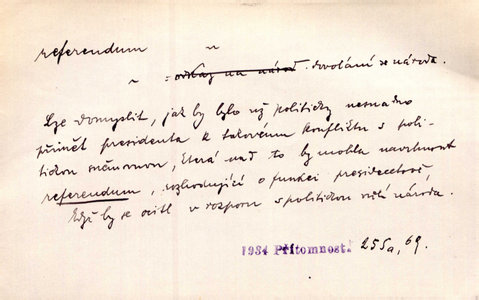 referendum ~
~ = odkaz na národ. dovolání se národa.
Lze domyslit, jak by bylo už politicky nesnadno
přimět presidenta k takovému konfliktu s poli-
tickou sněmovnou, která nad to by mohla navrhnout
referendum, rozhodující o funkci presidentově,
když by se ocitl v rozporu s politickou vůlí národa.
1934 Přítomnost. 255a, 69.